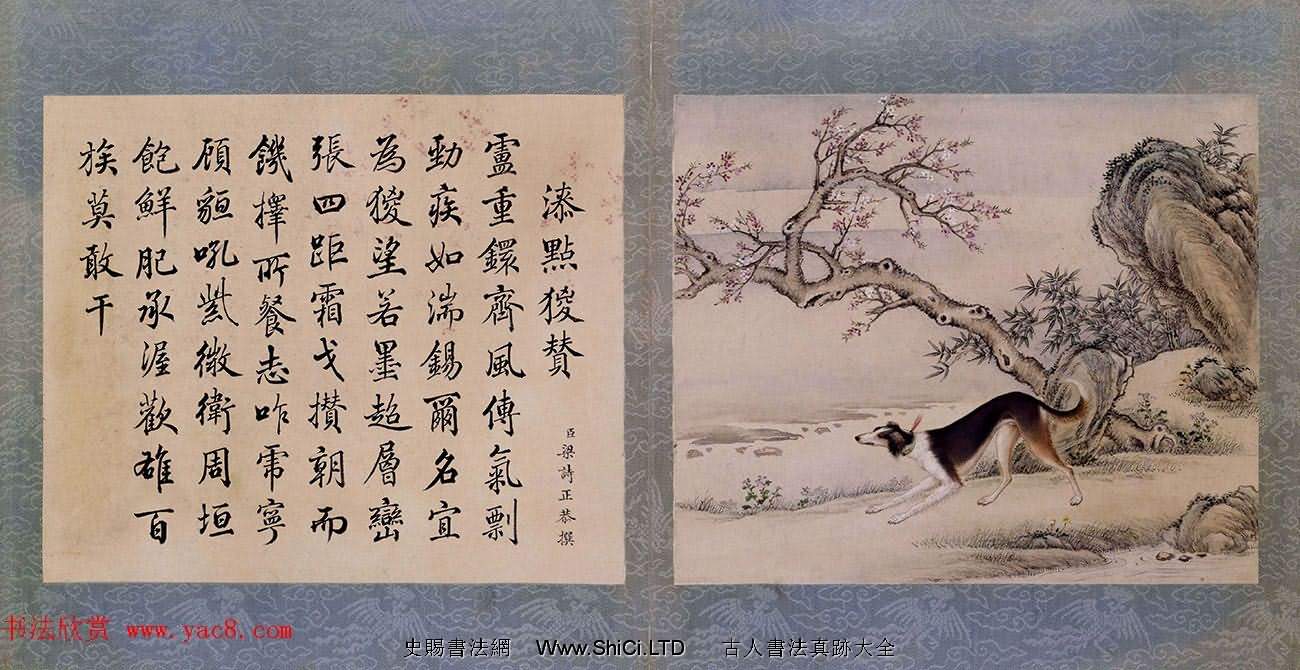 漆點猣賛
臣梁詩正恭撰
盧重鐶齊風傳氣剽
勁疾如湍錫爾名宜
為猣望若墨超層巒
張四距霜戈攅朝而
饑擇所餐志咋虎寧
顧貆吼紫微衛周垣
飽鮮肥承渥歡雄百
族莫敢干
书法欣赏 www.yac8.com
史賜書法網 Www.ShiCi.LTD 古人書法真跡大全